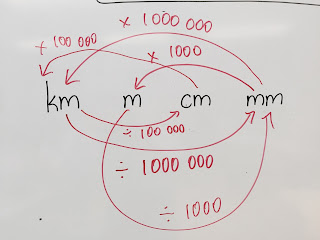 × 1000 000
× 100 000
× 1000
km m cm mm
÷ 100 000
÷ 1000 000
÷ 1000